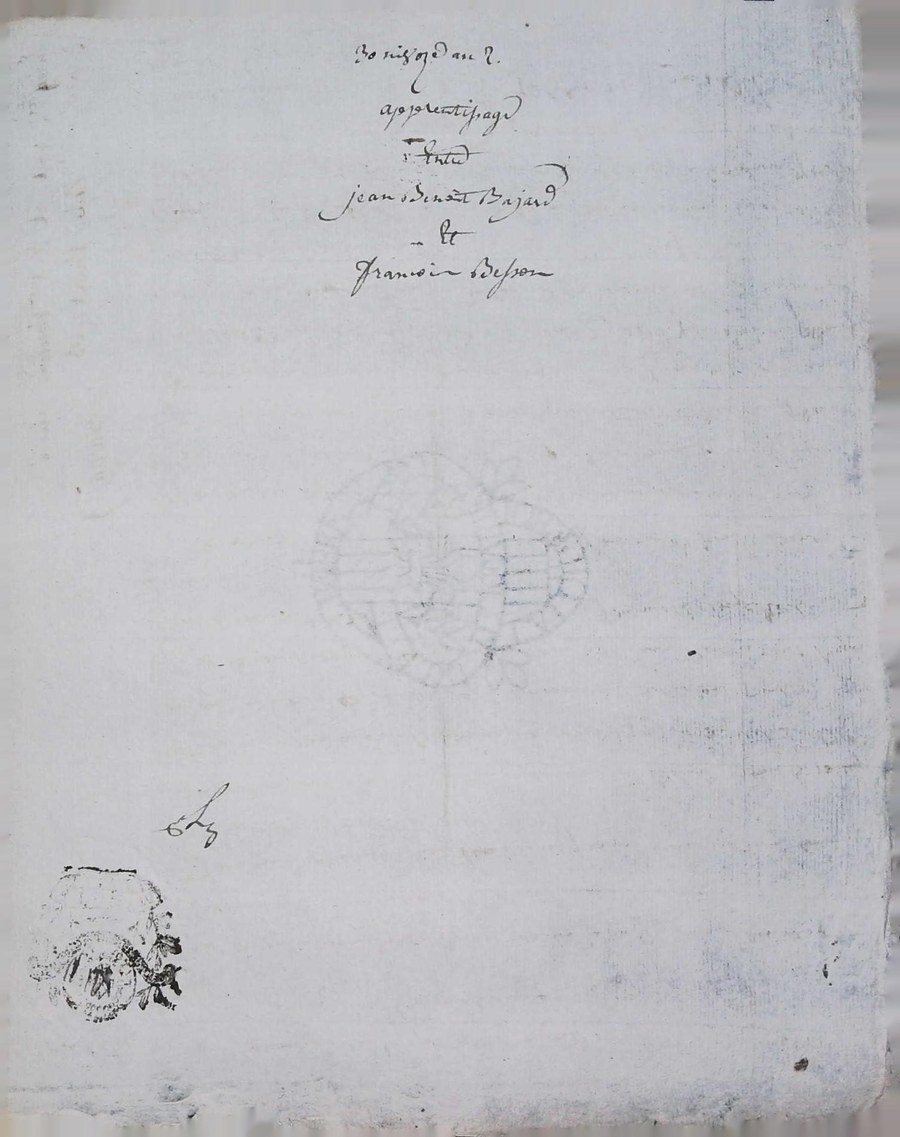 30 niv ose an 2.
apprentissage
Entre
jean Benoit Bajard
Et
francois Besson